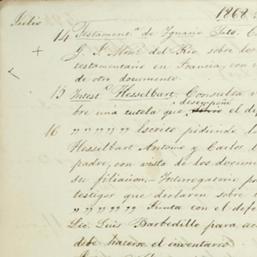 1868
Julio
14 Testament.ª de Ignacio
J. J. Mtnz. del Rio sobre los
testamentario en Francia, con
de otro documento.
15 Intest.º Hesselbart. Consulta
desempeñe
bre una tutela que el
16 " " " " " Escrito pidiendo
Hesselbart Antonio y Carlos
padre, con vista de los docume
su filiacion. Interrogatorio p
testigos que declaren sobre
" " " " " Junta con el def
Lic. Luis Barbedillo para ac
debe hacerse el inventario